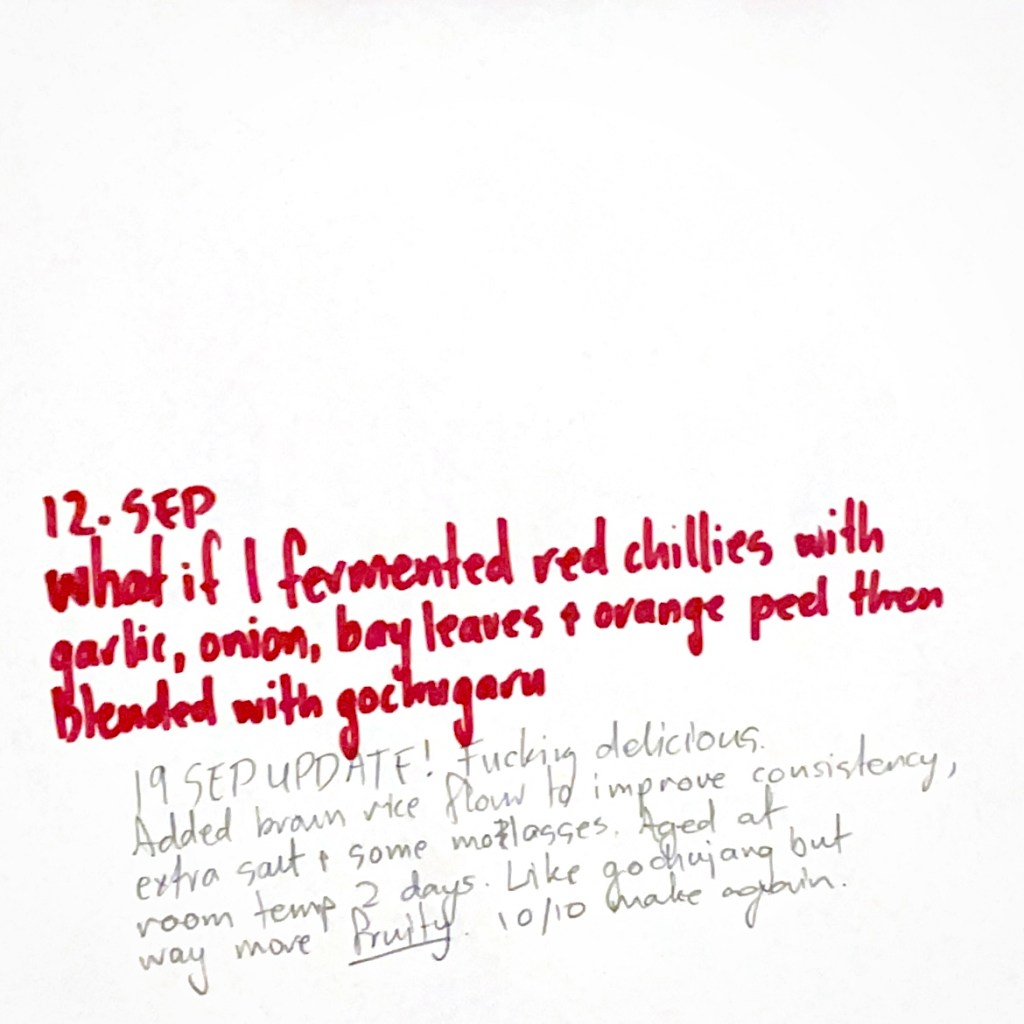 12. SEP
what if I fermented red chillies with
garlic, onion, bay leaves & orange peel then
blended with gochugaru
19 SEP UPDATE! Fucking delicious.
Added brown rice flour to improve consistency,
extra salt & some molasses. Aged at
room temp 2 days. Like gochujang but
way more fruity. 10/10 make again.